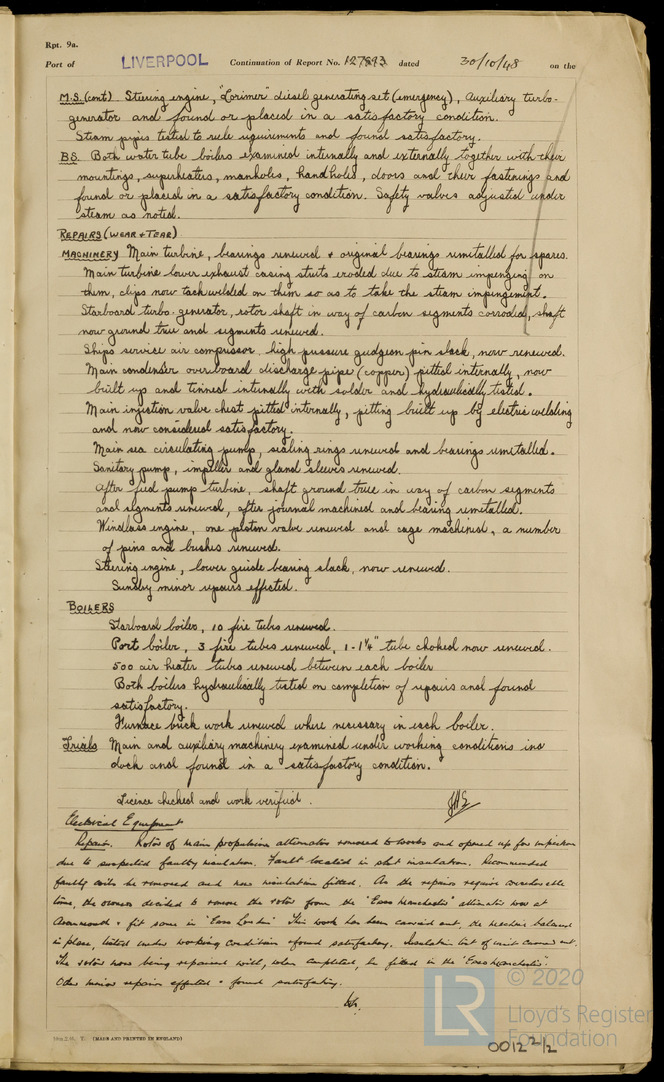 Rpt. 9a.
Port of LIVERPOOL Continuation of Report No. 127893 dated 30/10/48 on the
M.S. (cont) Steering engine, "Lorimer" diesel generating set (emergency), Auxiliary turbo-
generator and found or placed in a satisfactory condition.
Steam pipes tested to rule requirements and found satisfactory.
BS. Both water tube boilers examined internally and externally together with their
mountings, superheaters, manholes, handholes, doors and their fastenings and
found or placed in a satisfactory condition. Safety valves adjusted under
steam as noted.
REPAIRS (WEAR + TEAR)
MACHINERY Main turbine, bearings renewed + original bearings remetalled for spares.
Main turbine lower exhaust casing struts eroded due to steam impinging on
them, clips now tackwelded on them so as to take the steam impingement.
Starboard turbo-generator, rotor shaft in way of carbon segments corroded, shaft
now ground true and segments renewed.
Ships service air compressor, high pressure gudgeon pin slack, now renewed.
Main condenser overboard discharge pipe (copper) pitted internally, now
built up and tinned internally with solder and hydraulically tested.
Main injection valve chest pitted internally, pitting built up by electric welding
and now considered satisfactory.
Main sea circulating pump, sealing rings renewed and bearings remetalled.
Sanitary pump, impeller and gland sleeves renewed.
After feed pump turbine, shaft ground true in way of carbon segments
and segments renewed, after journal machined and bearing remetalled.
Windlass engine, one piston valve renewed and cage machined, a number
of pins and bushes renewed.
Steering engine, lower guide bearing slack, now renewed.
Sundry minor repairs effected.
BOILERS
Starboard boiler, 10 fire tubes renewed.
Port boiler, 3 fire tubes renewed, 1-1¼" tube choked now renewed.
500 air heater tubes renewed between each boiler
Both boilers hydraulically tested on completion of repairs and found
satisfactory.
Furnace brick work renewed where necessary in each boiler.
Trials Main and auxiliary machinery examined under working conditions in
dock and found in a satisfactory condition.
Licence checked and work verified.
Electrical Equipment
Repairs. Rotor of main propulsion alternator removed to works and opened up for inspection
due to suspected faulty insulation. Fault located in slot insulation. Recommended
faulty coils be removed and new insulation fitted. As the repairs require considerable
time, the owners decided to remove the rotor from the "Esso Manchester" alternator now at
Avonmouth + fit same in "Esso London" This work has been carried out, the machine balanced
in place, tested under working condition + found satisfactory. Insulation test of unit carried out.
The rotor now being repaired will, when completed, be fitted in the "Esso Manchester".
Other minor repairs effected + found satisfactory.
(MADE AND PRINTED IN ENGLAND)
© 2020
LR
Lloyd's Register
Foundation
0012 2/2